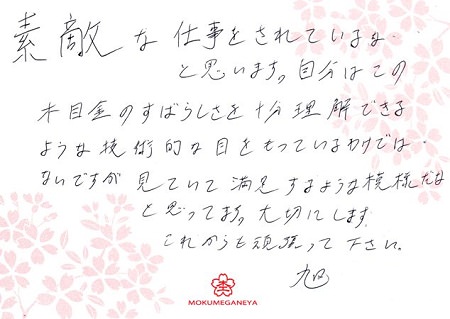 素敵な仕事をされているな
と思います。自分はこの
木目金のすばらしさを十分理解できる
ような技術的な目をもっているわけでは
ないですが見ていて満足するような模様だな
と思ってます。大切にします。
これからも頑張って下さい。
旭
MOKUMEGANEYA